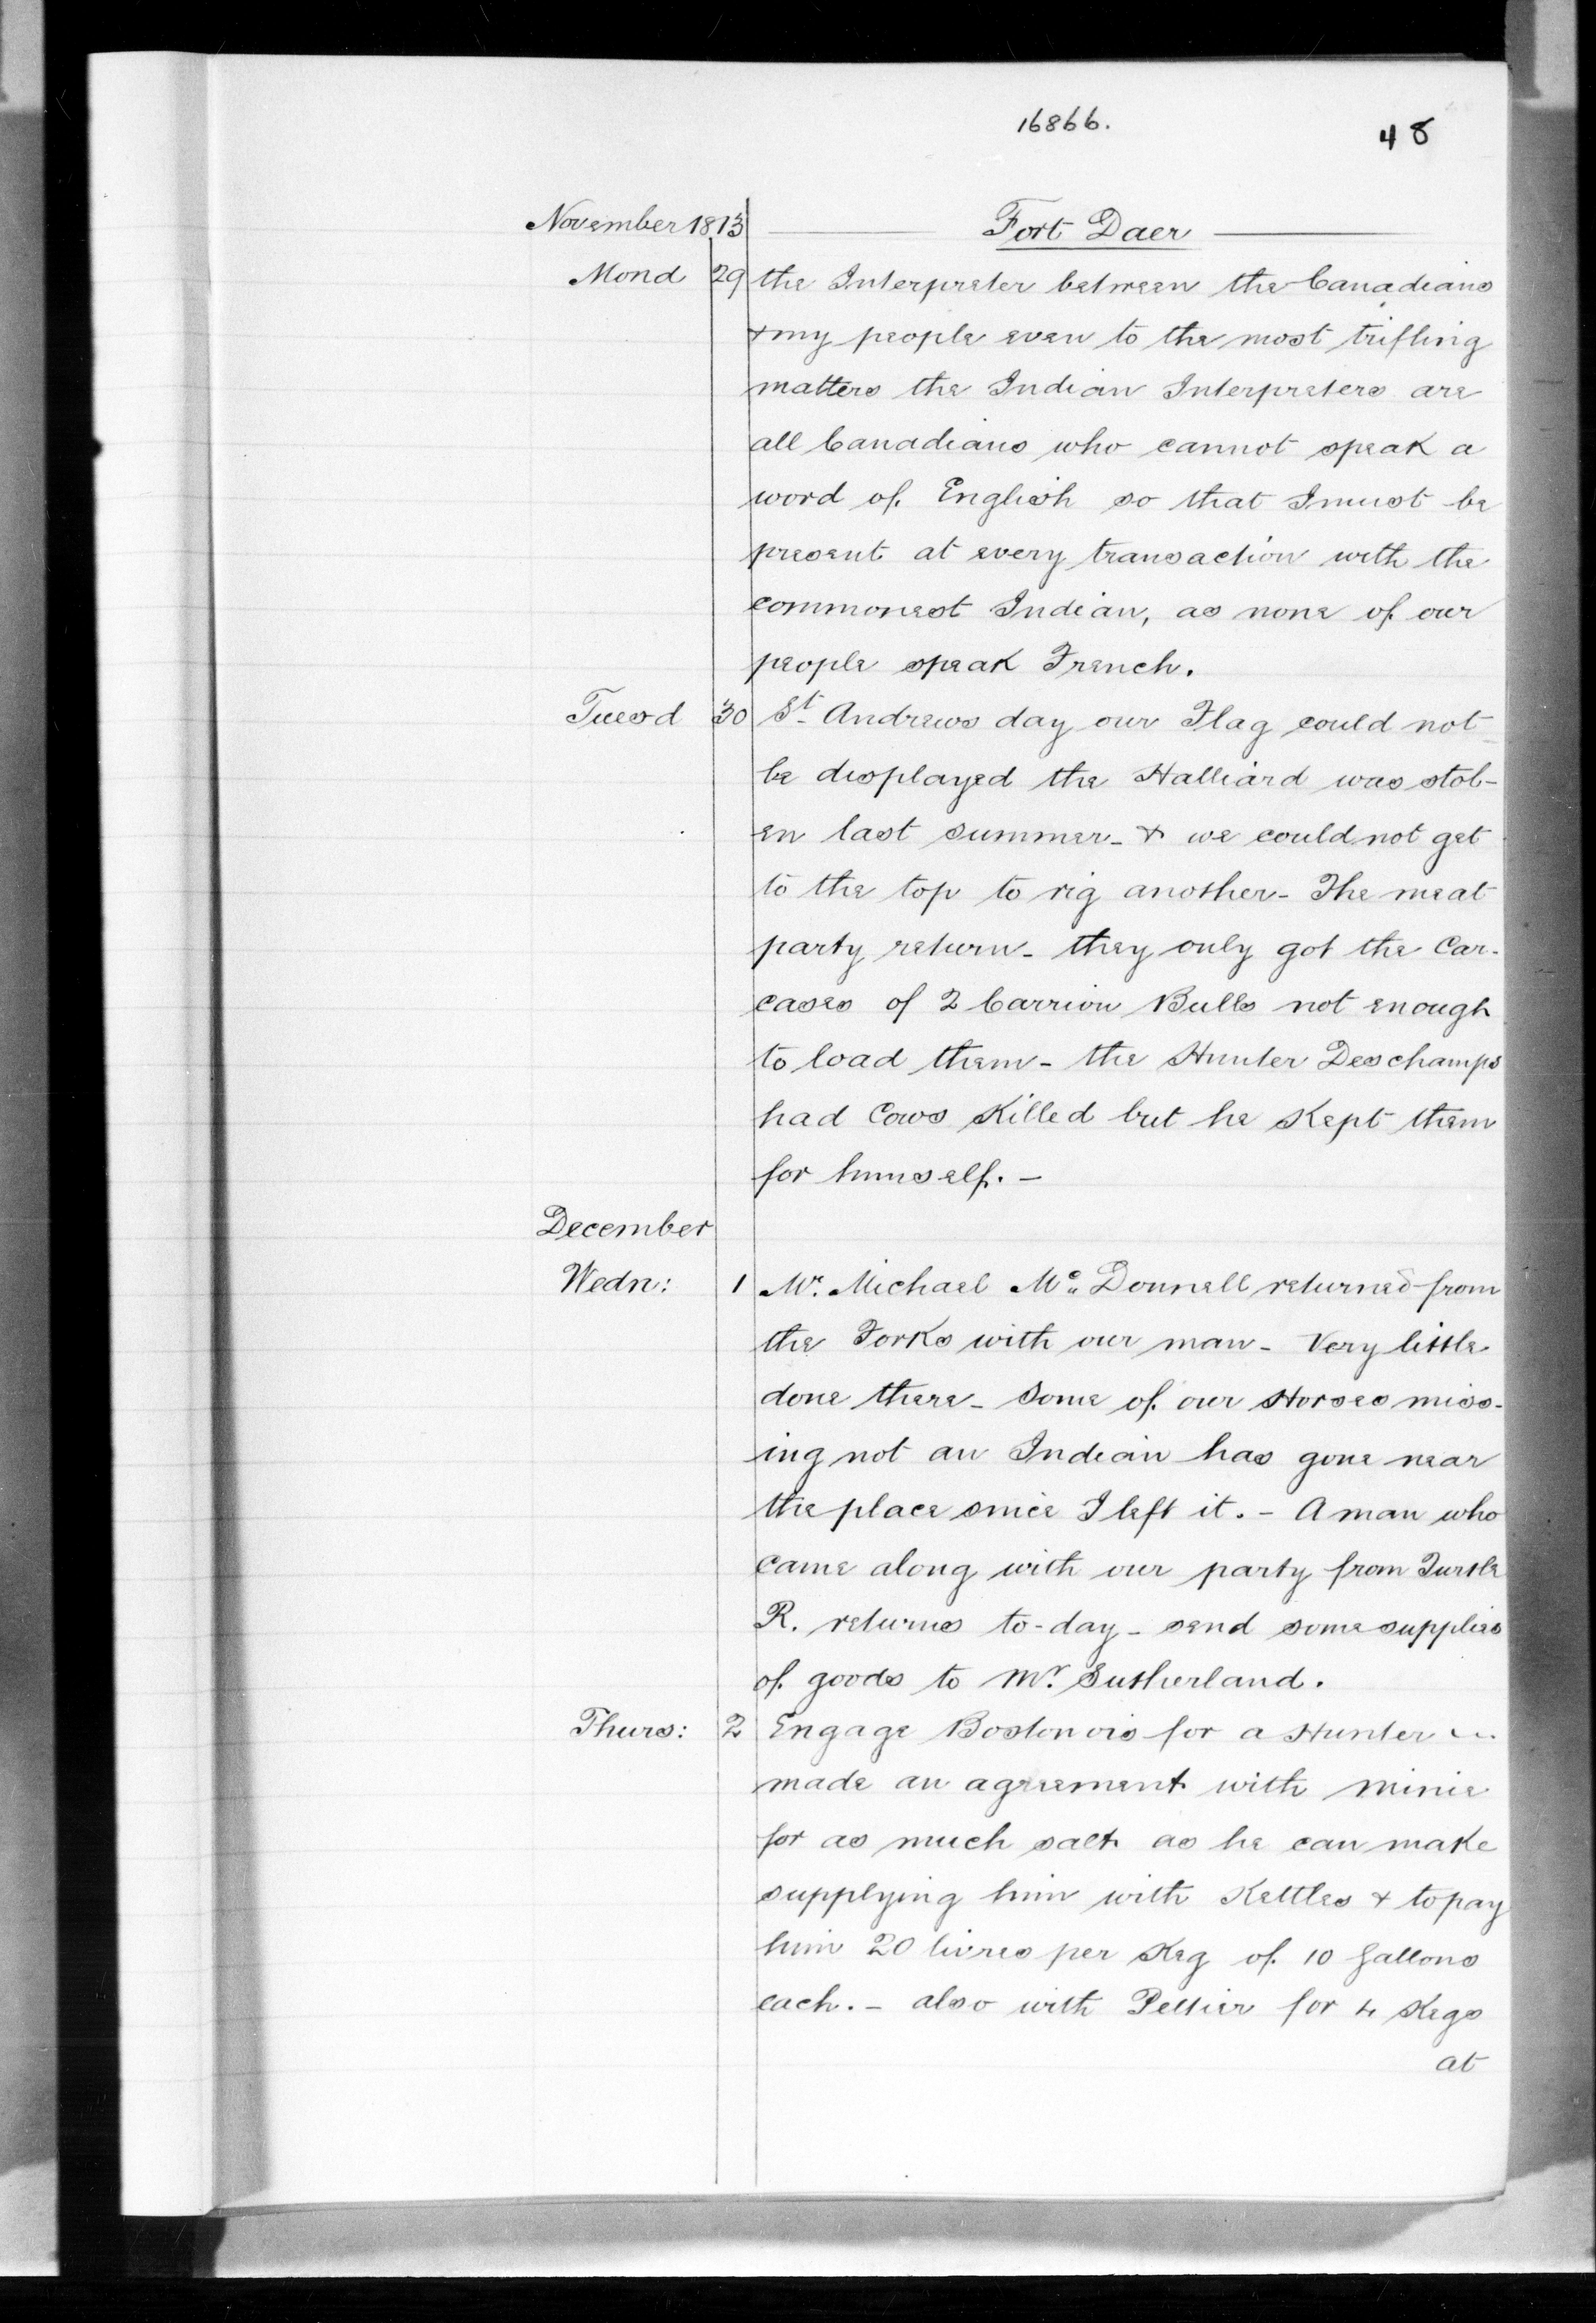 16866.
48
November 1813 Fort Daer
Mond 29 the Interpreter between the Canadians
& my people even to the most trifling
matters the Indian Interpreters are
all Canadians who cannot speak a
word of English so that I must be
present at every transaction with the
commonest Indian, as none of our
people speak French.
Tuesd 30 St. Andrews day our Flag could not
be displayed the Halliard was stol-
en last summer - & we could not get
to the top to rig another - The meat
party return - they only got the Car-
cases of 2 Carrion Bulls not enough
to load them - the Hunter Deschamps
had Cows Killed but he Kept them
for himself. -
December
Wedn: 1 Mr. Michael Mc. Donnell returned from
the Forks with our man - Very little
done there - Some of our Horses miss-
ing not an Indian has gone near
the place since I left it. - A man who
came along with our party from Turtle
R. returns to-day - send some supplies
of goods to Mr. Sutherland.
Thurs: 2 Engage Bostonois for a Hunter
made an agreement with Minie
for as much salt as he can make
supplying him with Kettles & to pay
him 20 livres per Keg of 10 Gallons
each. - also with Peltier for 4 Kegs
at